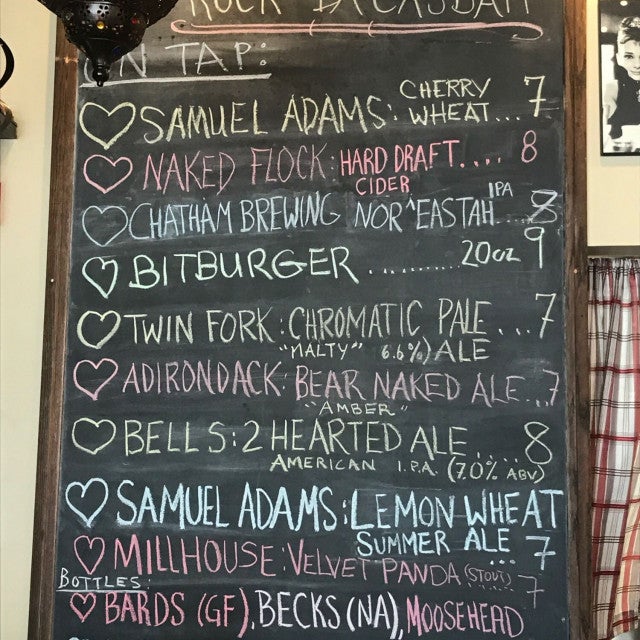 ROCK DA CASBAH
ON TAP:
SAMUEL ADAMS: CHERRY WHEAT... 7
NAKED FLOCK: HARD DRAFT.... 8
CIDER
CHATHAM BREWING NOR'EASTAH IPA ... 8
BITBURGER .......... 20oz 9
TWIN FORK: CHROMATIC PALE ... 7
"MALTY" 6.6%) ALE
ADIRONDACK: BEAR NAKED ALE... 7
"AMBER"
BELLS: 2 HEARTED ALE.... 8
AMERICAN I.P.A. (7.0% ABV)
SAMUEL ADAMS: LEMON WHEAT
SUMMER ALE ... 7
MILLHOUSE: VELVET PANDA (STOUT) 7
BOTTLES:
BARDS (GF), BECKS (NA), MOOSEHEAD